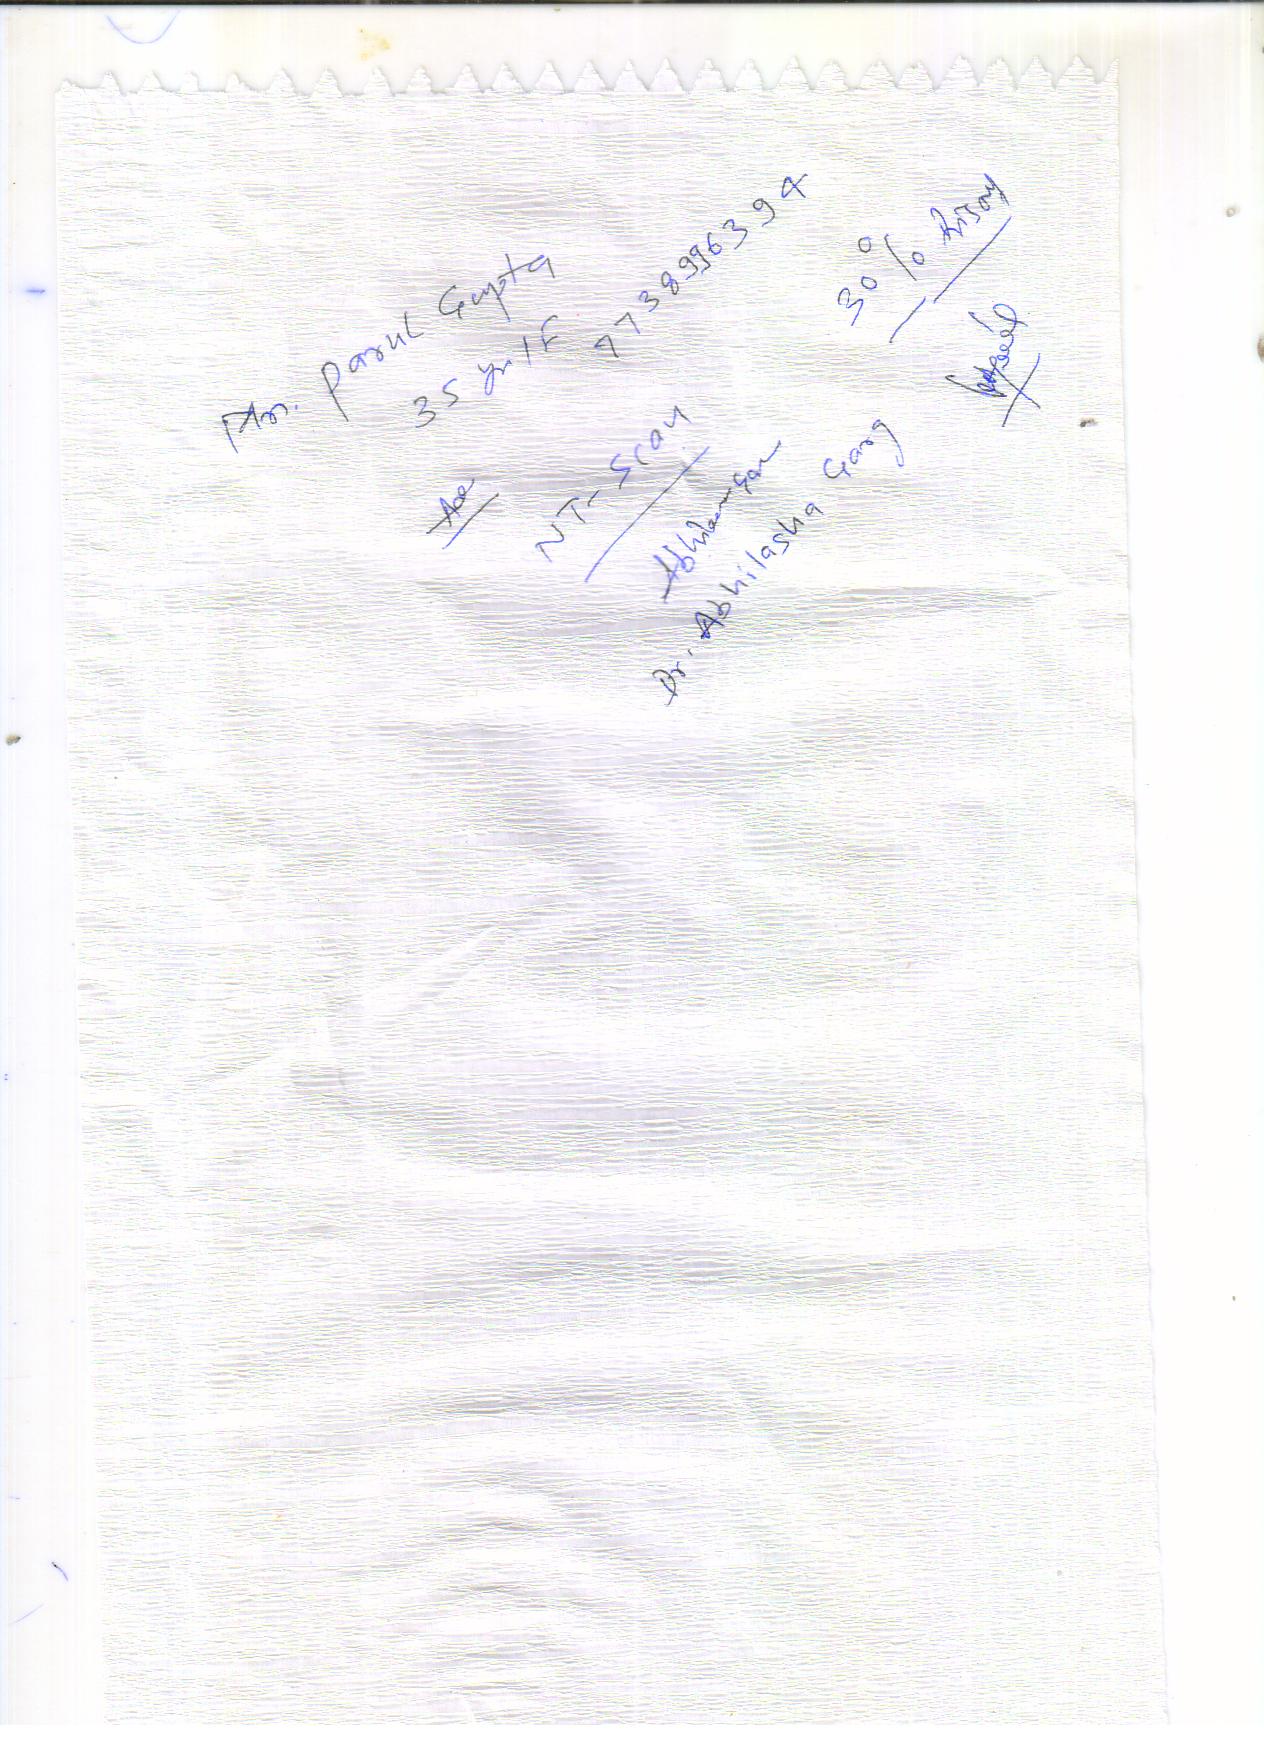 Mrs. Parul Gupta
35 yr/F 7738996394
Adv
NT-Scan
Dr. Abhilasha Garg
30%